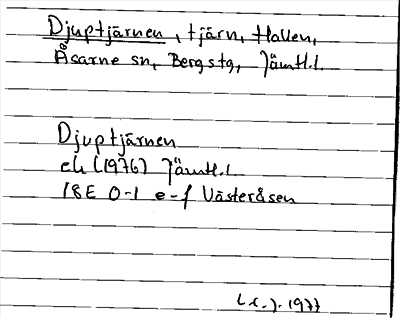 Djuptjärnen, tjärn, Hallen,
Åsarne sn, Bergs tg, Jämtl.l.
Djuptjärnen
ek (1976) Jämtl.l
18E 0-1 e-f Västeråsen
1977